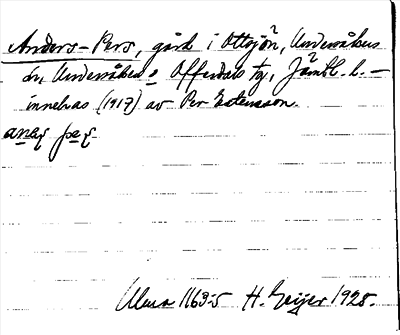 Anders-Pers, gård i Ottsjön, Undersåkers
sn, Undersåkers o. Offerdals tg, Jämtl. l. —
innehas (1917) av Per Estensson.
Ulma 1163:5 H. Geijer 1928.